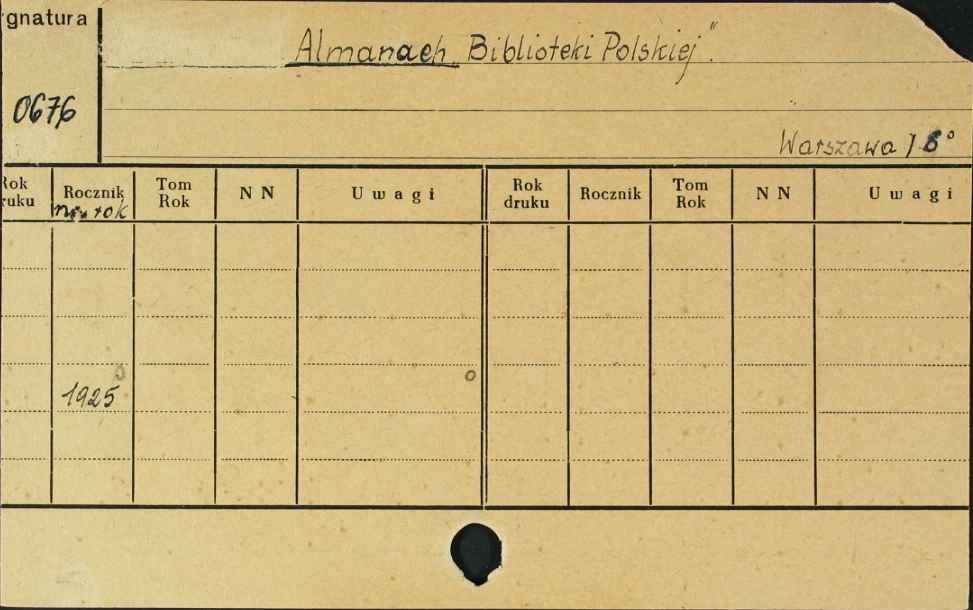 gnatura
Almanach „Biblioteki Polskiej".
0676
Warszawa
Rok druku Rocznik Tom Rok N N Uwagi Rok druku Rocznik Tom Rok N N Uwagi
rok
1925